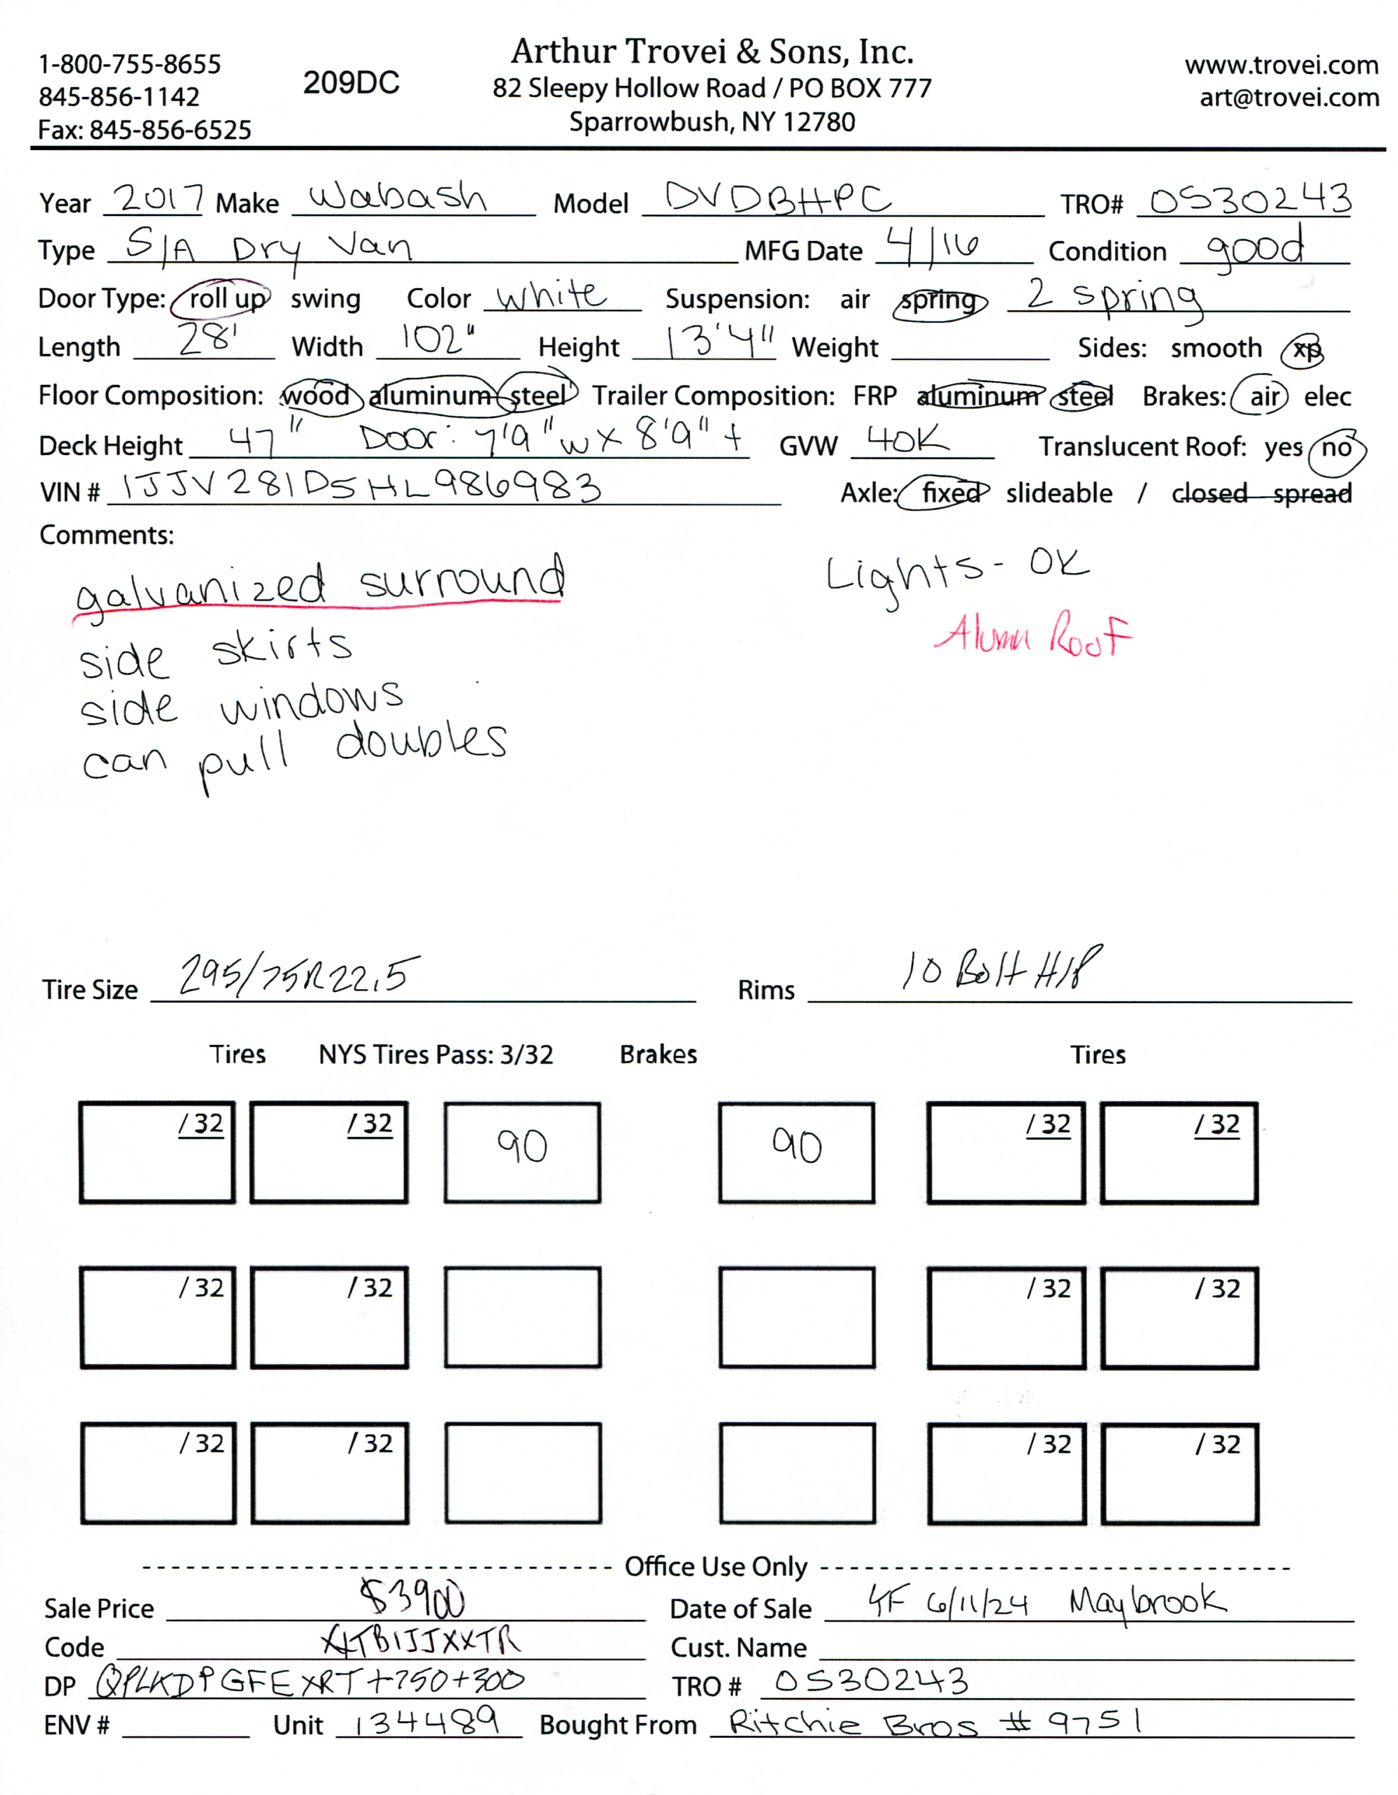 1-800-755-8655
845-856-1142
Fax: 845-856-6525
209DC
Arthur Trovei & Sons, Inc.
82 Sleepy Hollow Road / PO BOX 777
Sparrowbush, NY 12780
www.trovei.com
art@trovei.com
Year 2017 Make Wabash Model DVDBHPC TRO# 0S30243
Type S/A Dry Van MFG Date 4/16 Condition good
Door Type: roll up swing Color white Suspension: air spring 2 spring
Length 28' Width 102" Height 13'4" Weight Sides: smooth xp
Floor Composition: wood aluminum steel Trailer Composition: FRP aluminum steel Brakes: air elec
Deck Height 47" Door: 7'9"w x 8'9"t GVW 40K Translucent Roof: yes no
VIN # 1JJV281D5HL986983 Axle: fixed slideable / closed spread
Comments:
galvanized surround
side skirts
side windows
can pull doubles
Lights - OK
Alumn Roof
Tire Size 295/75R22.5 Rims 10 Bolt H/P
Tires NYS Tires Pass: 3/32 Brakes Tires
/32 /32 90 90 /32 /32
/32 /32 /32 /32
/32 /32 /32 /32
Office Use Only
Sale Price $3900 Date of Sale YF 6/11/24 Maybrook
Code
Cust. Name
DP QPLKDPGFEXRT+750+300 TRO # 0S30243
ENV # Unit 134489 Bought From Ritchie Bros # 9751